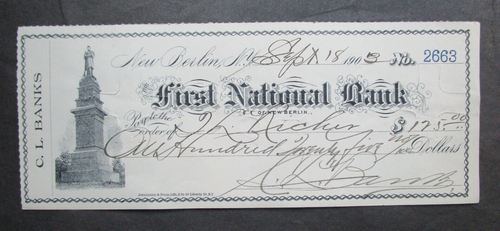 New Berlin, N.Y. Sept 18 1903 No. 2663
First National Bank
OF NEW BERLIN.
Pay to the
order of $125.00
One Hundred Twenty five Dollars
C. L. Banks
C. L. BANKS